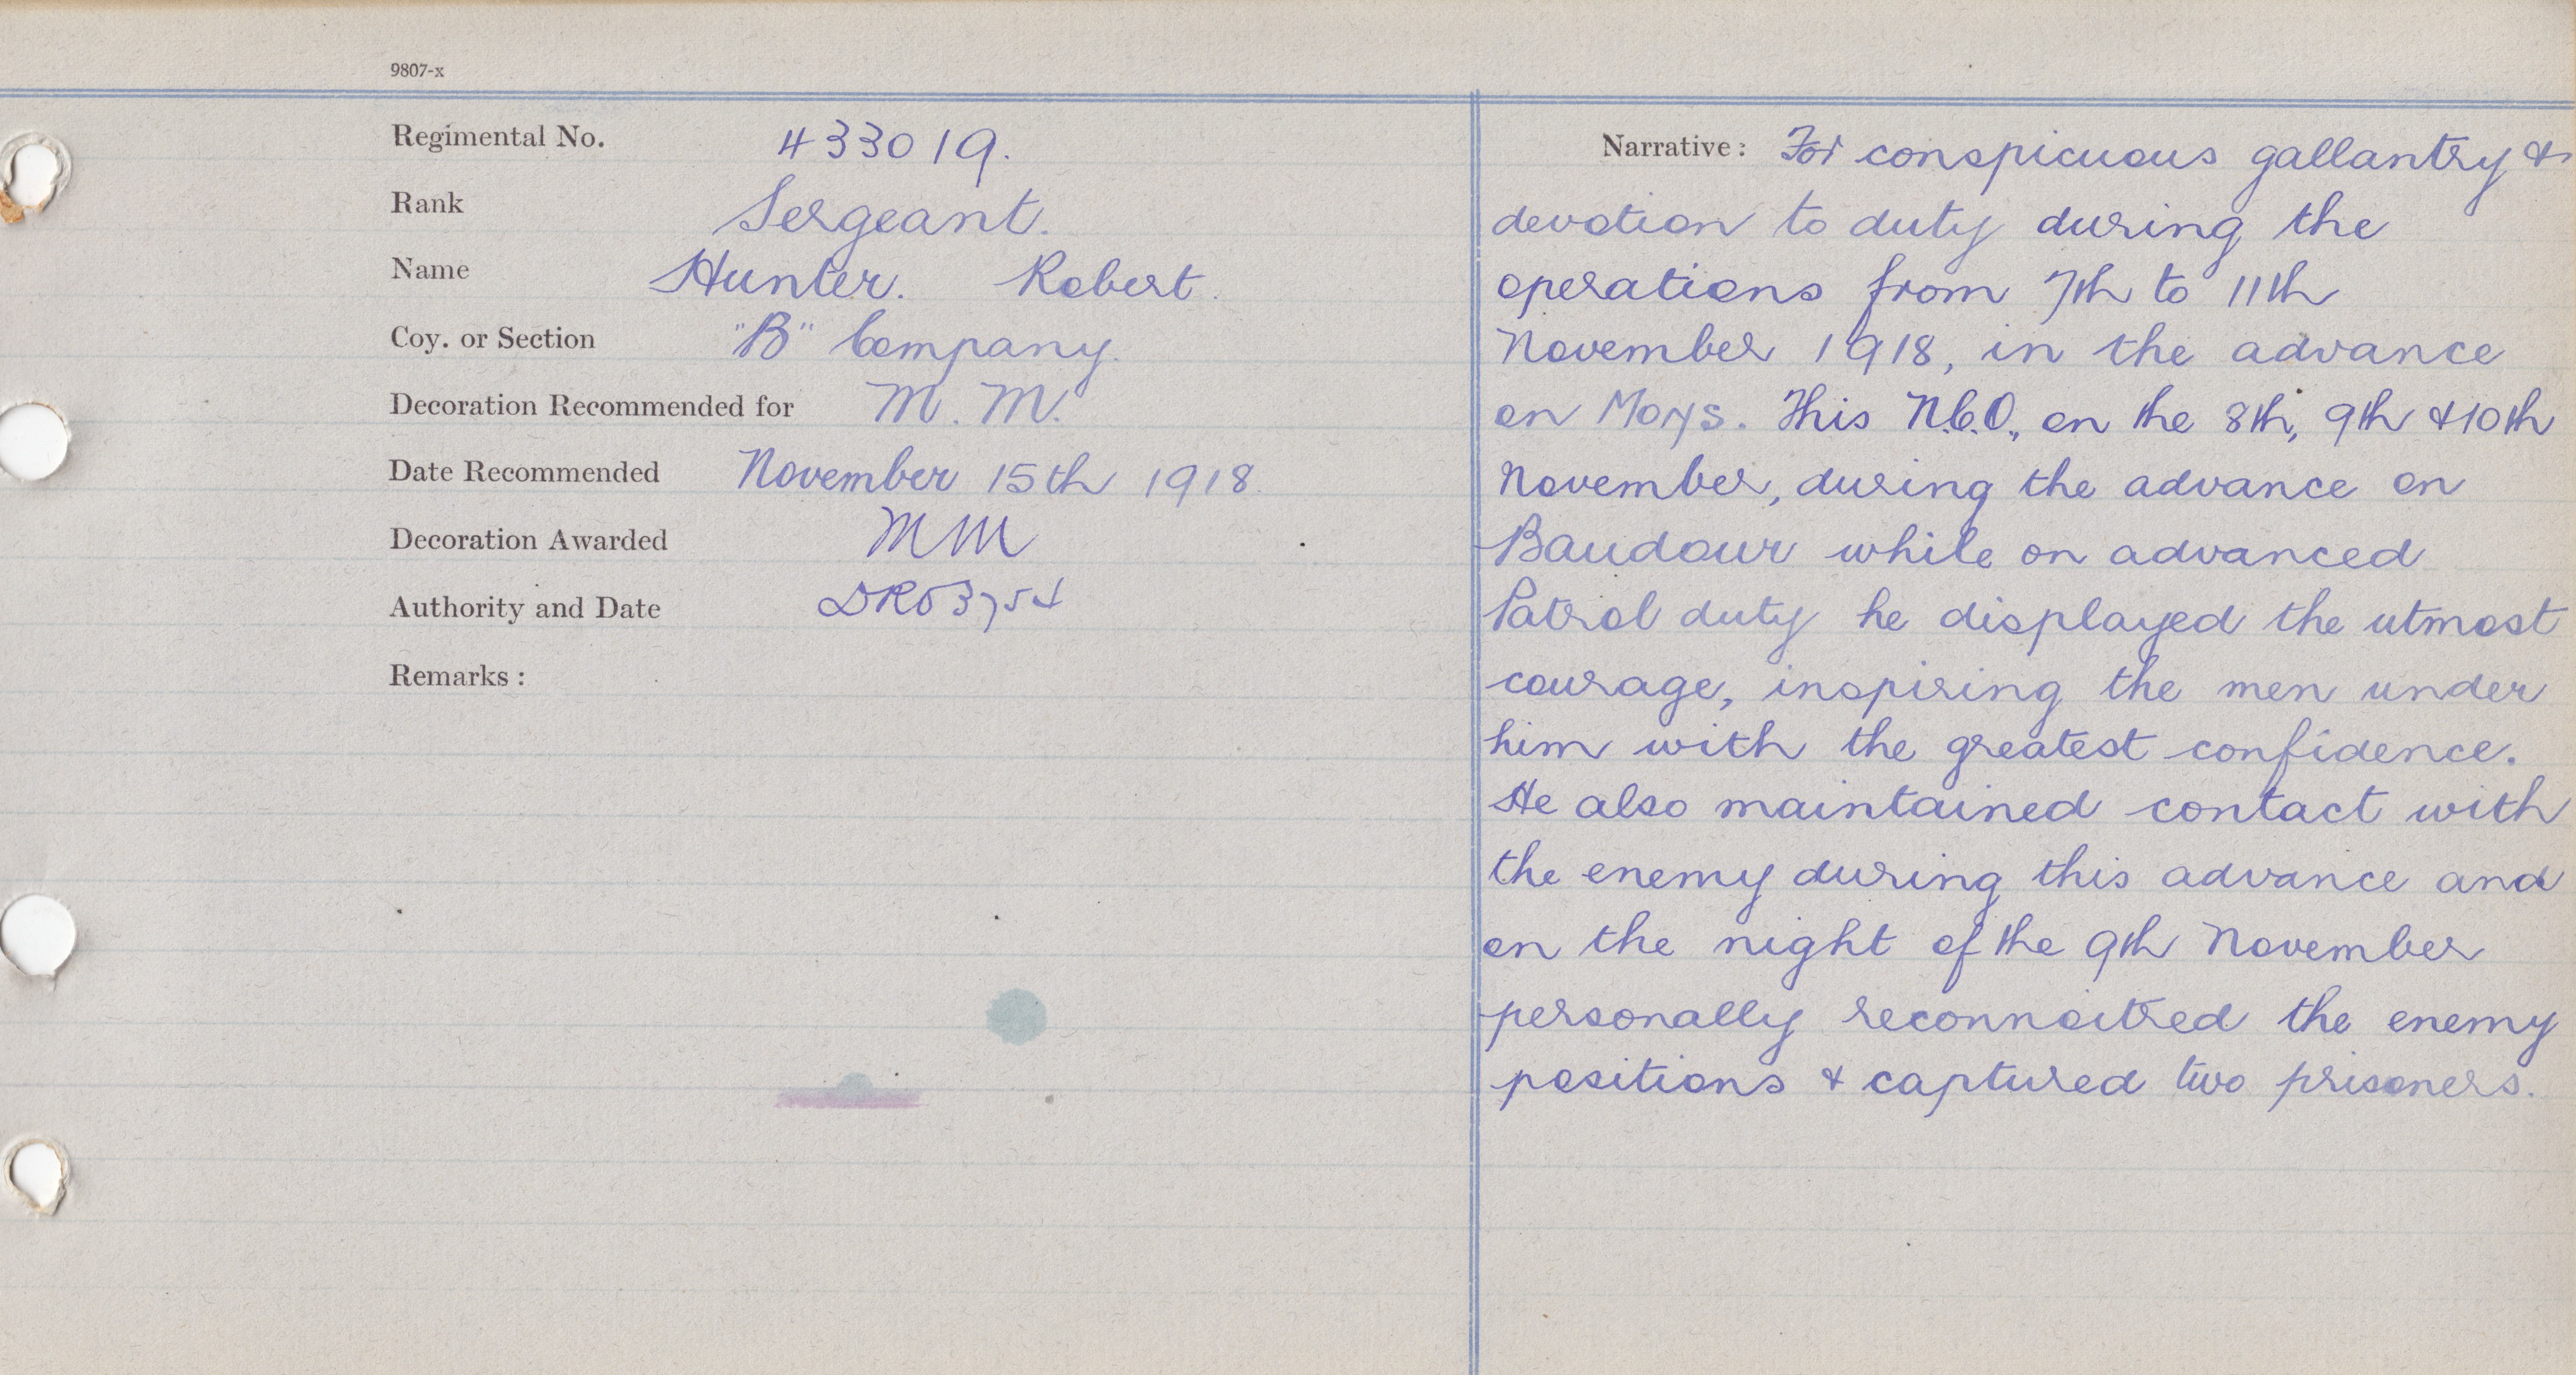 9807-x
Regimental No. 433019.
Rank Sergeant.
Name Hunter. Robert.
Coy. or Section "B" Company.
Decoration Recommended for M. M.
Date Recommended November 15th 1918.
Decoration Awarded MM
Authority and Date DRO 3754
Remarks :
Narrative : For conspicuous gallantry &
devotion to duty during the
operations from 7th to 11th
November 1918, in the advance
on Mons. This N.C.O., on the 8th, 9th & 10th
November, during the advance on
Baudour while on advanced
Patrol duty he displayed the utmost
courage, inspiring the men under
him with the greatest confidence.
He also maintained contact with
the enemy during this advance and
on the night of the 9th November
personally reconnoitred the enemy
positions & captured two prisoners.